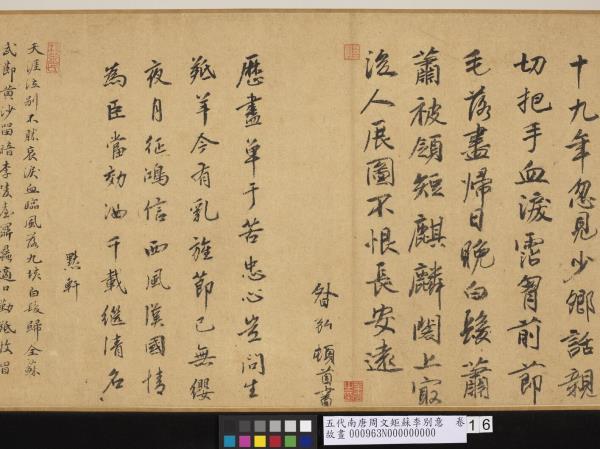 十九年忽見少卿話親
切把手血淚霑胷前節
毛落盡歸日晚白髮蕭
蕭被領短麒麟閣上寂
後人展圖不恨長安遠
弘頓首書
歷盡單于苦忠心豈問生
羝羊今有乳旌節已無纓
夜月征鴻信西風漢國情
為臣當効汝千載繼清名
默軒
天涯泣別不勝哀淚血臨風落九垓白髮歸全蘇
武節黃沙留暗李陵臺
五代南唐周文矩蘇李別意 卷
故畫 000963N000000000
16